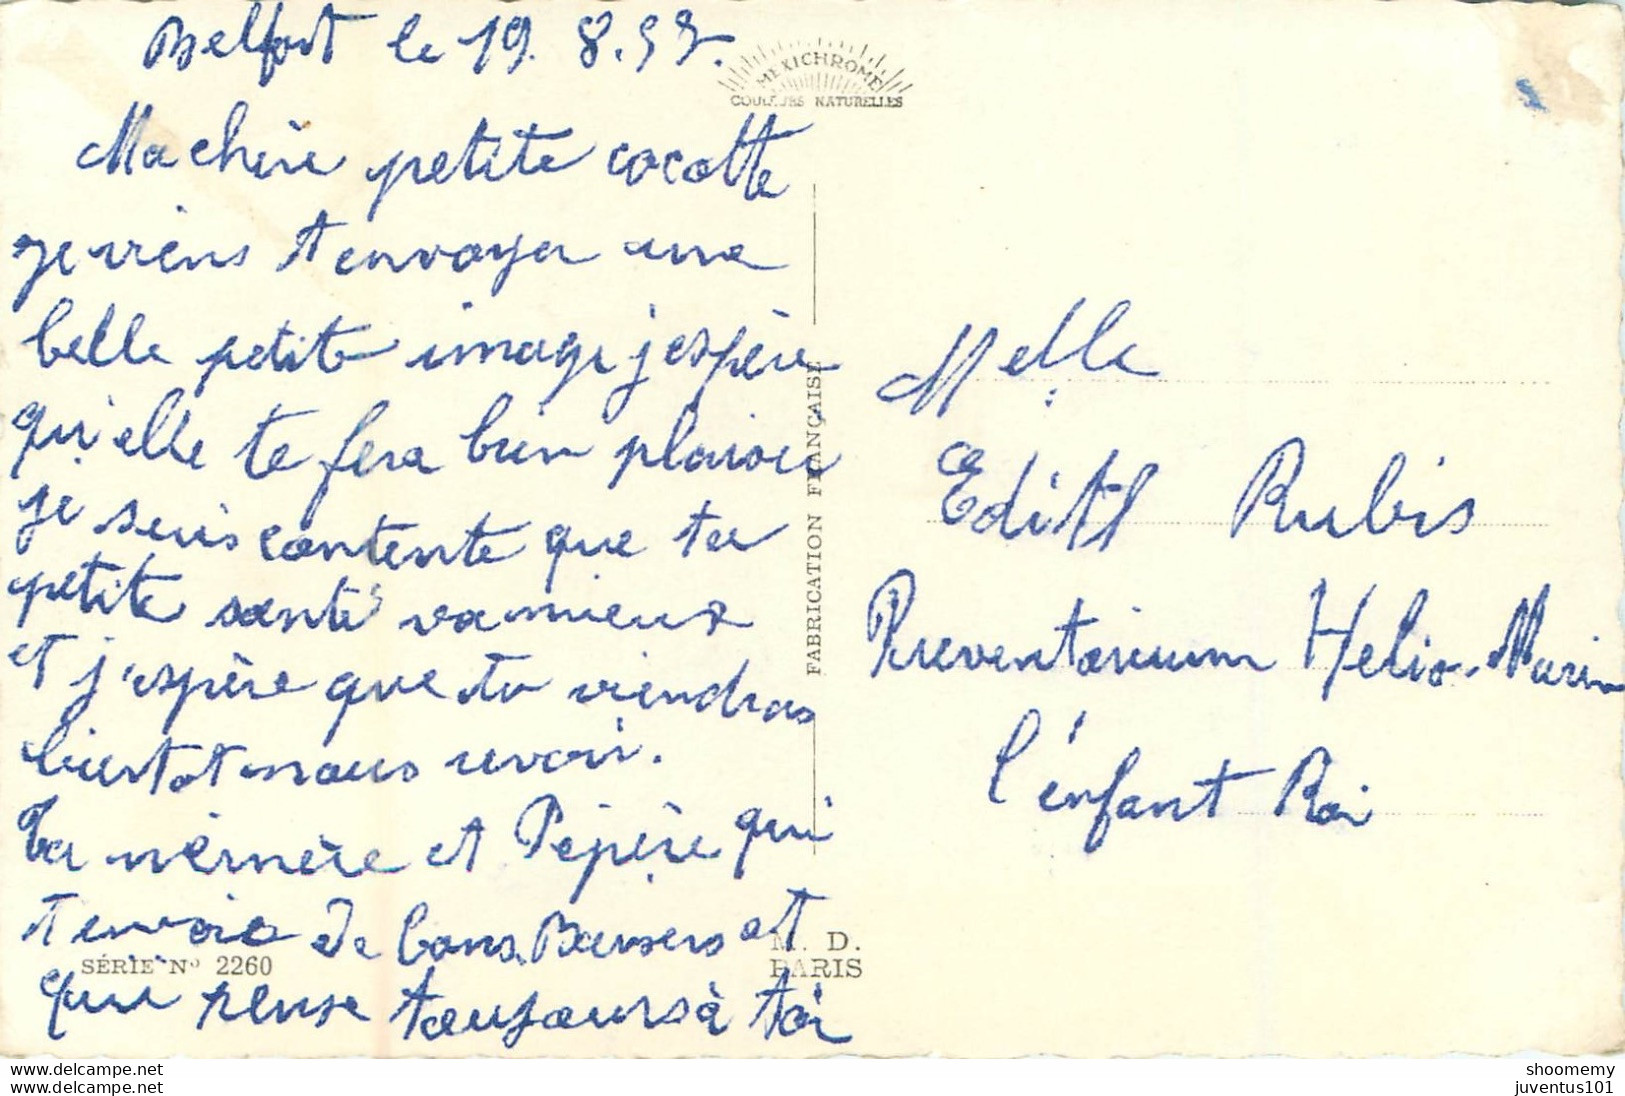 Belfort le 19. 8. 57.
Ma chère petite cocotte
je viens t envoyer une
belle petite image j'espère
qu'elle te fera bien plaisir
je suis contente que ta
petite santé va mieux
et j'espère que tu viendras
bientot nous revoir.
Ta mémère et Pépère qui
t envoie de bons Baisers et
qui pense toujours à toi
MEXICHROME
COULEURS NATURELLES
FABRICATION FRANÇAISE
SÉRIE N° 2260
M. D.
PARIS
Melle
Edith Rubis
Preventorium Helio-Marin
l'enfant Roi
https://www.delcampe.net
https://www.delcampe.net
shoomemy
juventus101